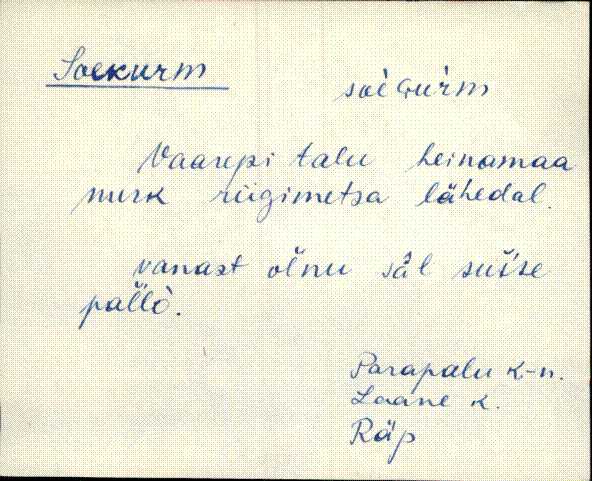 Soekurm
soeGurm
Vaarepi talu heinamaa
nurk riigimetsa lähedal.
vanast olnu säl
pallò.
Parapalu k-n.
Laane k.
Räp